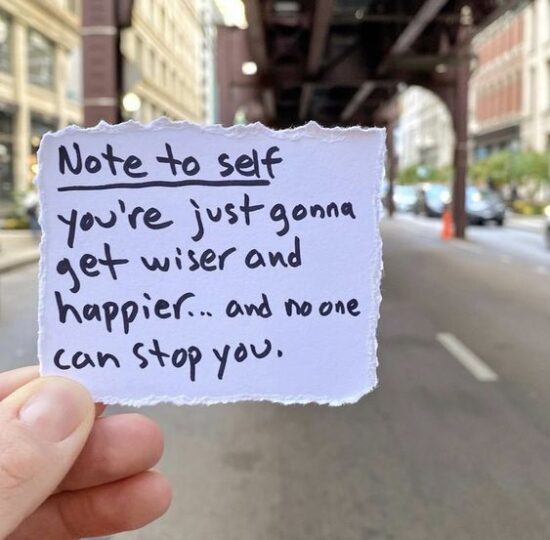 Note to self
you're just gonna
get wiser and
happier... and no one
can stop you.